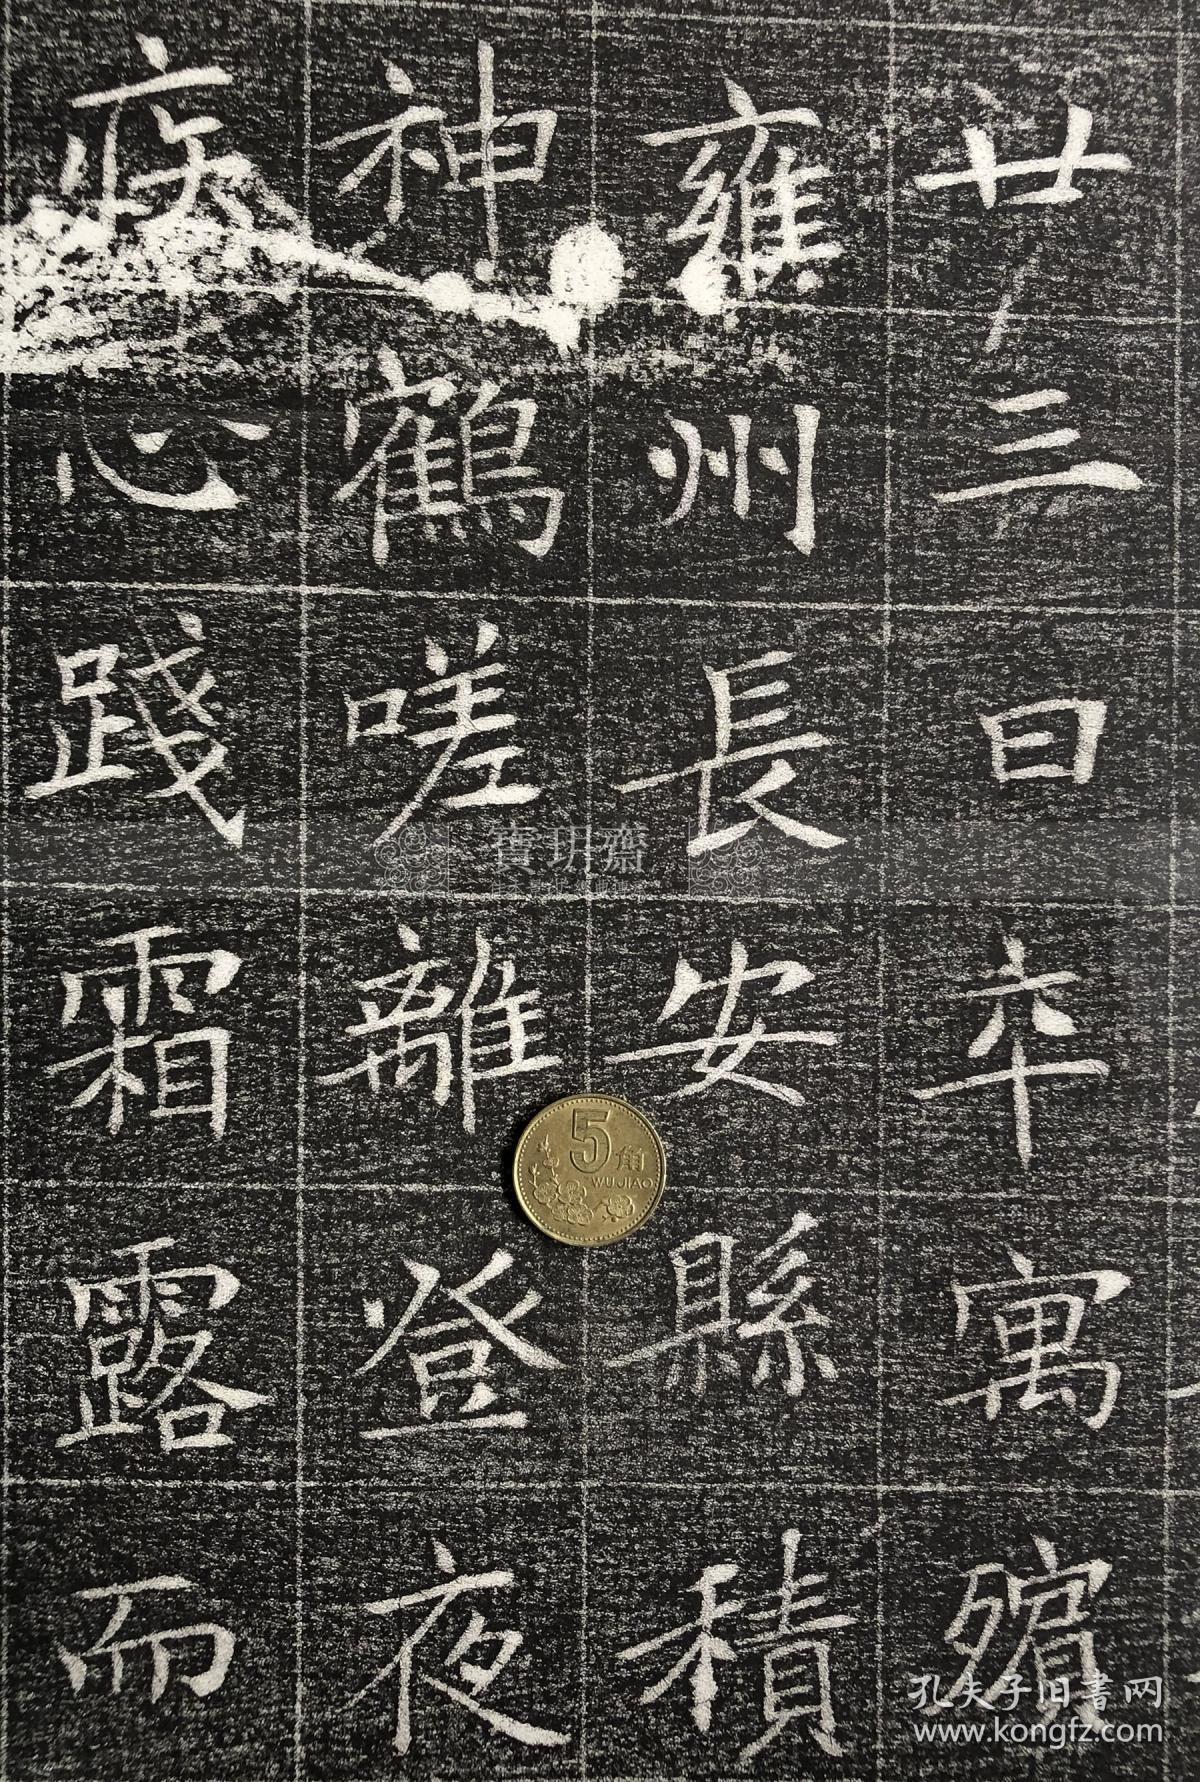 廿三日卒寓殯
雍州長安縣積
神鶴嗟離登夜
疾心踐霜露而
寶玥齋
5角
WUJIAO
孔夫子旧書网
www.kongfz.com